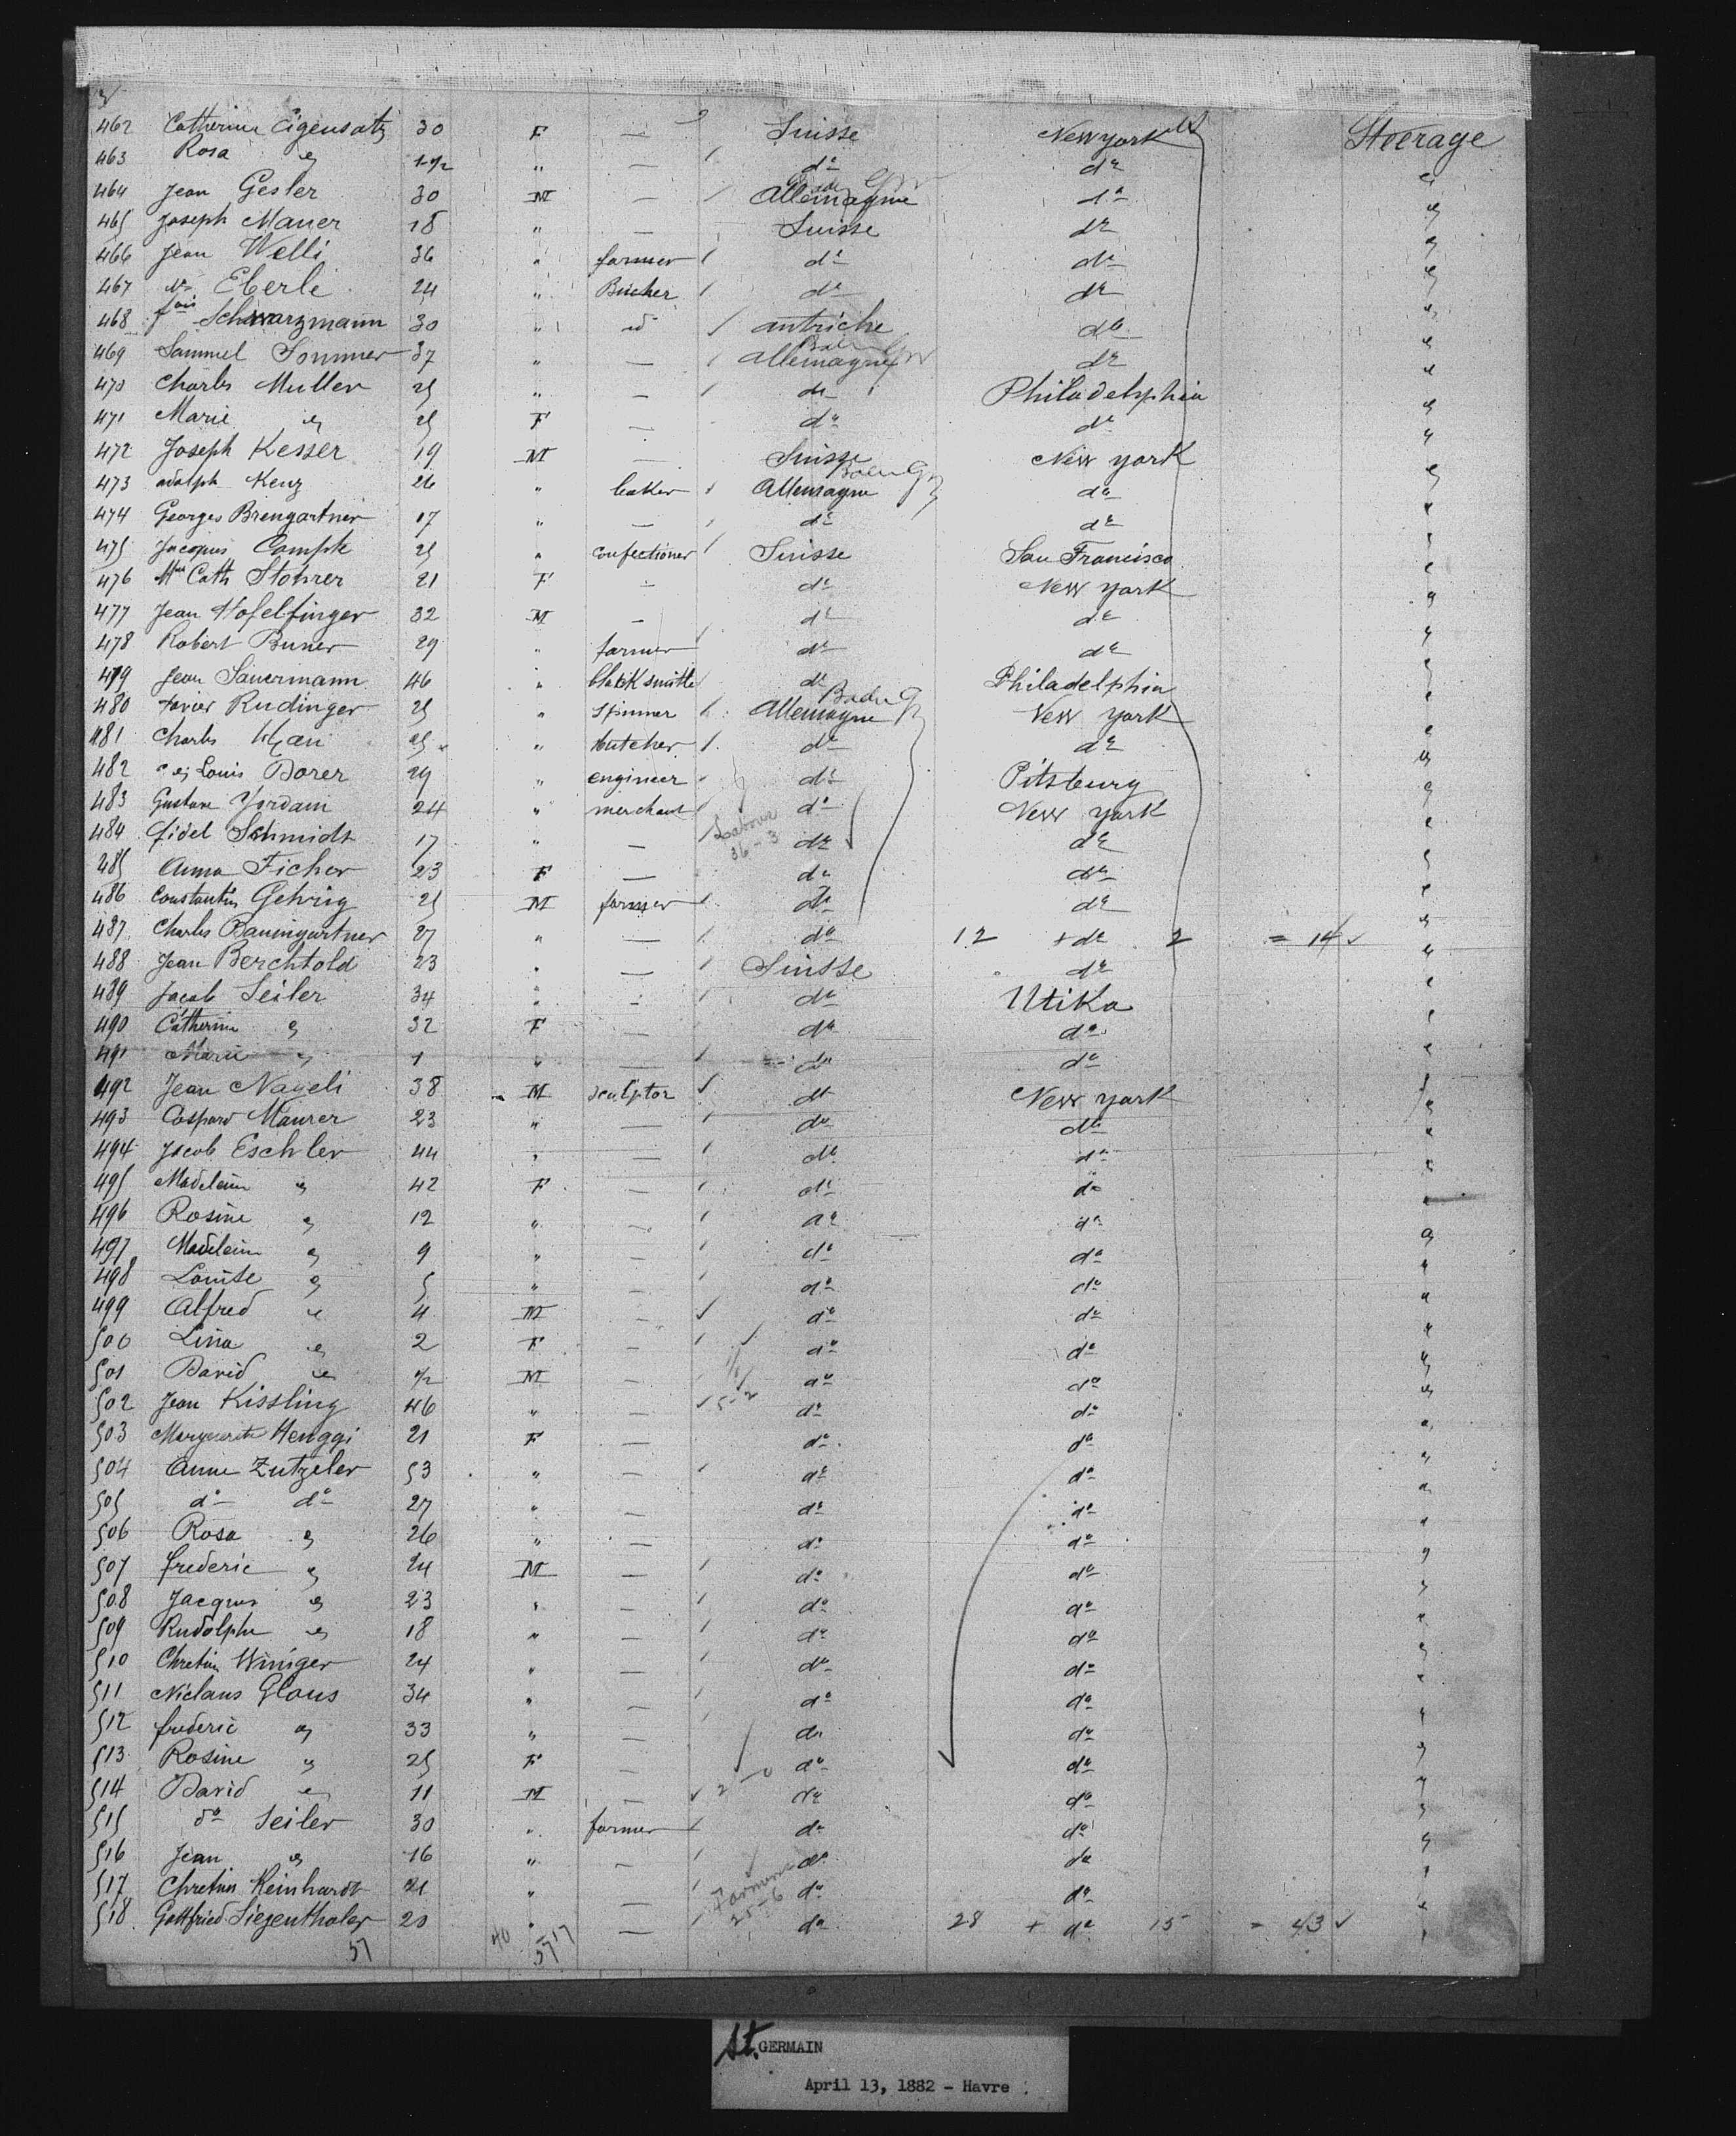 462 Catherine Eigensatz 30 F — Suisse New york Steerage
463 Rosa " 1½ " — do do "
464 Jean Gesler 30 M — Allemagne do "
465 Joseph Maner 18 " — Suisse do "
466 Jean Welli 36 " farmer do do "
467 Eberle 24 " Bucher do do "
468 fois Schwarzmann 30 " id autriche do "
469 Samuel Sommer 37 " — allemagne do "
470 Charles Muller 25 " — do Philadelphia "
471 Marie " 25 F — do do "
472 Joseph Kesser 19 M — Suisse New york "
473 adolph Kenz 26 " baker Allemagne do "
474 Georges Brengartner 17 " — do do "
475 Jacques Compte 25 " confectioner Suisse San Francisco "
476 Cath Stohrer 21 F — do New york "
477 Jean Hofelfinger 32 M — do do "
478 Robert Buner 29 " farmer do do "
479 Jean Sauermann 46 " blacksmith do Philadelphia "
480 Xavier Rudinger 25 " Spinner Allemagne Baden New york "
481 Charles 25 " butcher do do "
482 Louis Borer 29 " engineer do Pitsburg "
483 Gustave Yordain 24 " merchant do New york "
484 fidel Schmidt 17 " — Labour 36-3 do do "
485 Anna Ficher 23 F — do do "
486 Constantin Gehrig 25 M farmer do do "
487 Charles Baumgartner 27 " — do 12 + do 2 = 14 "
488 Jean Berchtold 23 " — Suisse do "
489 Jacob Seiler 34 " — do Utika "
490 Catherine " 32 F — do do "
491 Marie " 1 " — do do "
492 Jean Nageli 38 M sculptor do New york "
493 Caspard Maurer 23 " — do do "
494 Jacob Eschler 44 " — do do "
495 Madeleine " 42 F — do do "
496 Rosine " 12 " — do do "
497 Madeleine " 9 " — do do "
498 Louise " 5 " — do do "
499 Alfred " 4 M — do do "
500 Lina " 2 F — do do "
501 David " ½ M — do do "
502 Jean Kissling 46 " — 5-2 do do "
503 Marguerite Henggi 21 F — do do "
504 Anne Zutzeler 53 " — do do "
505 do do 27 " — do do "
506 Rosa " 26 " — do do "
507 frederic " 24 M — do do "
508 Jacques " 23 " — do do "
509 Rudolphe " 18 " — do do "
510 Chretien Winiger 24 " — do do "
511 Niclaus Glaus 34 " — do do "
512 frederic " 33 " — do do "
513 Rosine " 25 F — do do "
514 David " 11 M — 2-0 do do "
515 do Seiler 30 " farmer do do "
516 Jean " 16 " — do do "
517 Chretien Reinhardt 21 " — do do "
518 Gottfried Siegenthaler 20 " — Farmers 25-6 do 28 + do 15 = 43 "
57 40 17
57
St. GERMAIN
April 13, 1882 - Havre